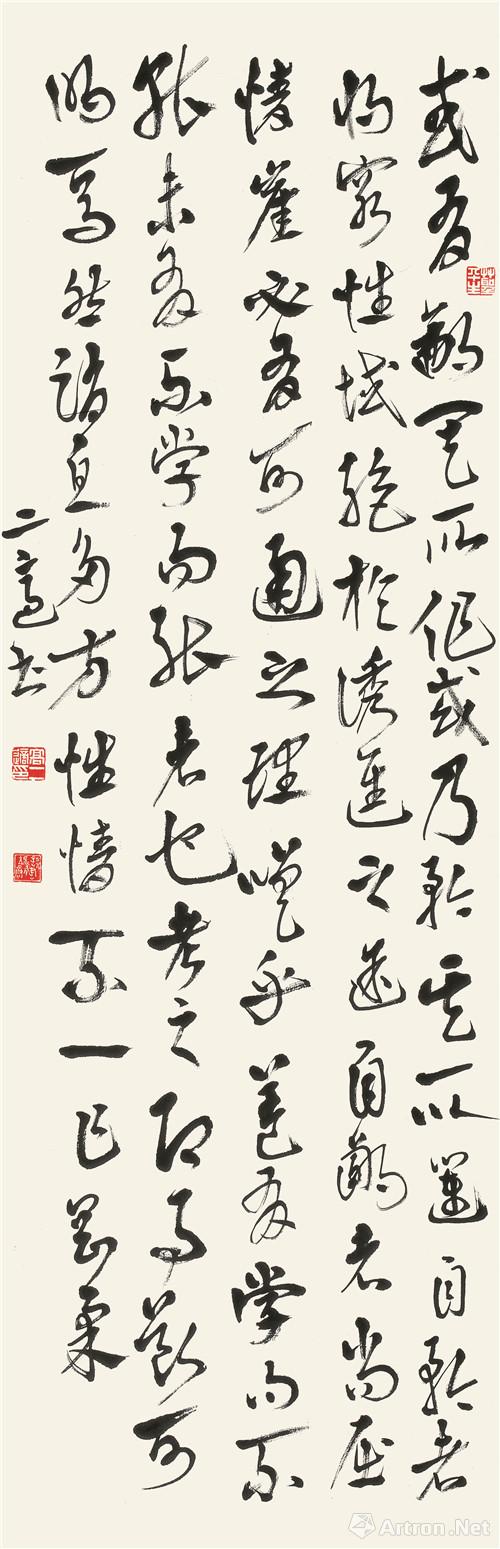 或有鄙其所作或乃矜其所運自矜者
將窮性域絕於誘進之途自鄙者尚屈
情崖必有可通之理嗟乎蓋有學而不
能未有不學而能者也考之即事斷可
明焉然消息多方性情不一乍剛柔
二適書
Artron.Net